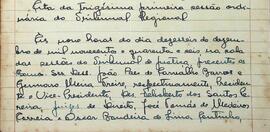 Acta da Trigésima primeira sessão ordi-
nária do Tribunal Regional
Ás nove horas do dia dezesseis de dezem-
bro de mil novecentos e quarenta e seis na sala
das sessões do Tribunal de Justiça presentes os
Srs. Des. João Paes de Carvalho Barros e
Gennaro Freire, respectivamente, Presiden-
te e Vice-Presidente, Des. Felisberto dos Santos Pe-
reira, juizes de Direito, José Tomás de Medeiros
Correia e Oscar Bandeira de Lima Coutinho,